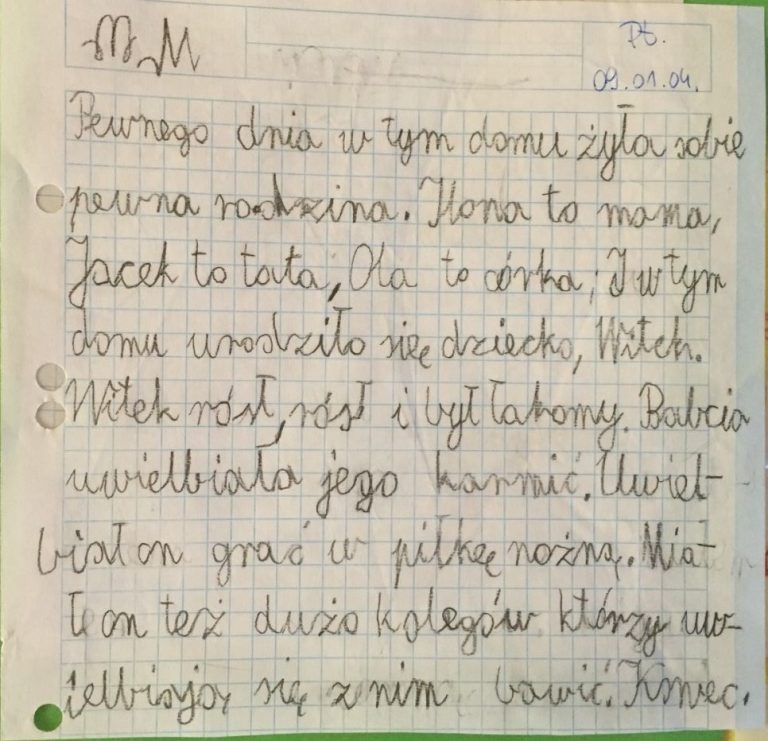 M M
Pt.
09.01.04.
Pewnego dnia w tym domu żyła sobie
pewna rodzina. Ilona to mama,
Jacek to tata, Ola to córka, I w tym
domu urodziło się dziecko, Witek.
Witek rósł, rósł i był łakomy. Babcia
uwielbiała jego karmić. Uwiel-
biał on grać w piłkę nożną. Mia-
ł on też dużo kolegów którzy uw-
ielbiają się z nim bawić. Koniec.